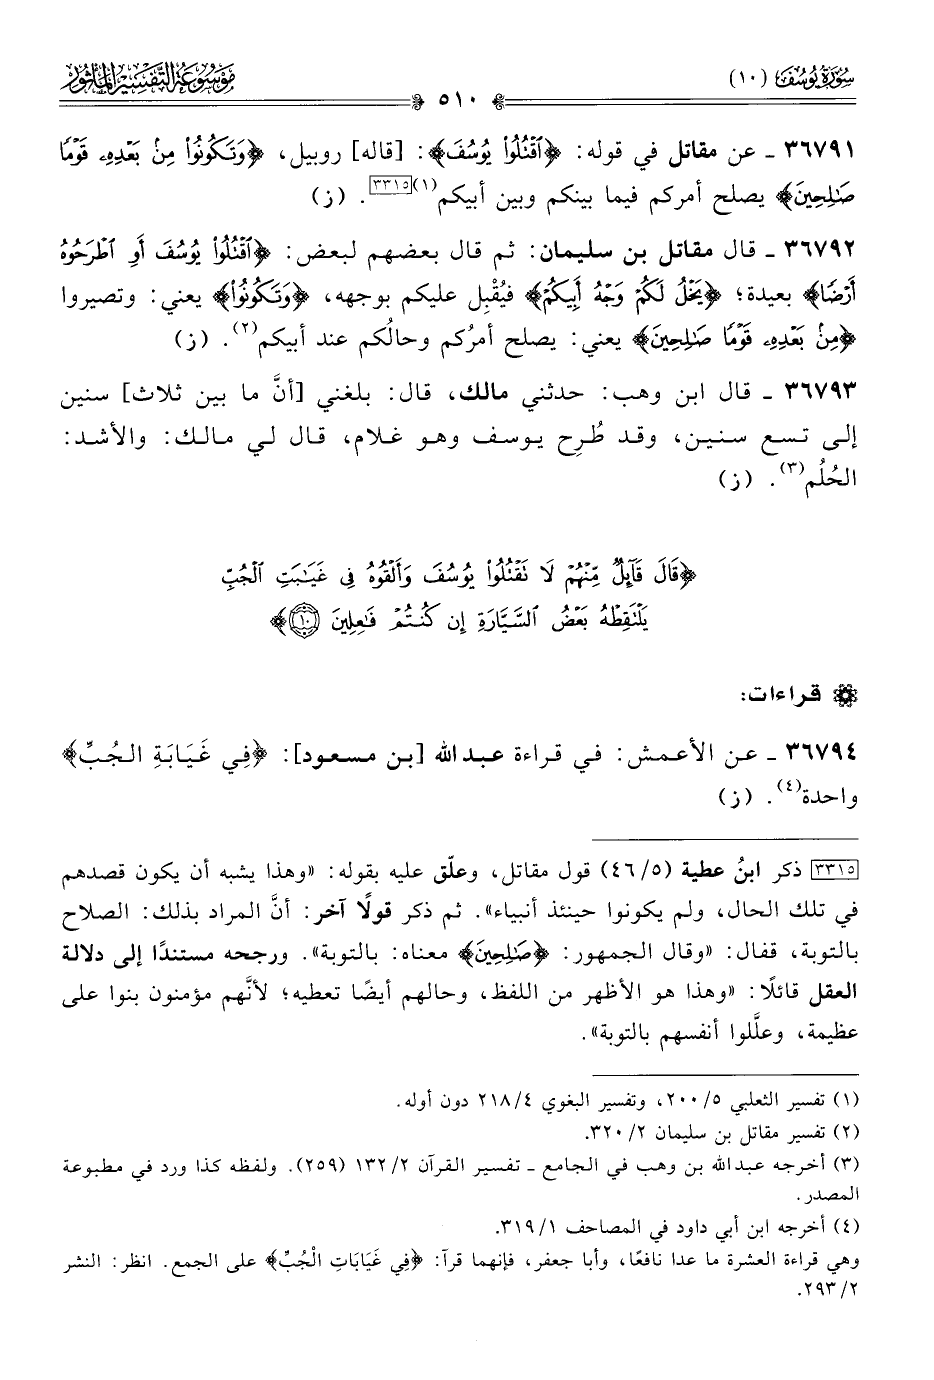 سُورَةُ يُوسُفَ (١٠)
٥١٠
مَوْسُوعَةُ التَّفْسِيرِ المَأْثُورِ
٣٦٧٩١ ـ عن مقاتل في قوله: ﴿ٱقْتُلُوا۟ يُوسُفَ﴾: [قاله] روبيل، ﴿وَتَكُونُوا۟ مِنۢ بَعْدِهِۦ قَوْمًا
صَٰلِحِينَ﴾ يصلح أمركم فيما بينكم وبين أبيكم(١)[٣٣١٥]. (ز)
٣٦٧٩٢ ـ قال مقاتل بن سليمان: ثم قال بعضهم لبعض: ﴿ٱقْتُلُوا۟ يُوسُفَ أَوِ ٱطْرَحُوهُ
أَرْضًا﴾ بعيدة؛ ﴿يَخْلُ لَكُمْ وَجْهُ أَبِيكُمْ﴾ فيُقْبِل عليكم بوجهه، ﴿وَتَكُونُوا۟﴾ يعني: وتصيروا
﴿مِنۢ بَعْدِهِۦ قَوْمًا صَٰلِحِينَ﴾ يعني: يصلح أمرُكم وحالُكم عند أبيكم(٢). (ز)
٣٦٧٩٣ ـ قال ابن وهب: حدثني مالك، قال: بلغني [أنَّ ما بين ثلاث] سنين
إلى تسع سنين، وقد طُرِح يوسف وهو غلام، قال لي مالك: والأشد:
الحُلُم(٣). (ز)
﴿قَالَ قَآئِلٌ مِّنْهُمْ لَا تَقْتُلُوا۟ يُوسُفَ وَأَلْقُوهُ فِى غَيَٰبَتِ ٱلْجُبِّ
يَلْتَقِطْهُ بَعْضُ ٱلسَّيَّارَةِ إِن كُنتُمْ فَٰعِلِينَ ١٠﴾
قراءات:
٣٦٧٩٤ ـ عن الأعمش: في قراءة عبدالله [بن مسعود]: ﴿فِي غَيَابَةِ الْجُبِّ﴾
واحدة(٤). (ز)
[٣٣١٥] ذكر ابنُ عطية (٤٦/٥) قول مقاتل، وعلّق عليه بقوله: «وهذا يشبه أن يكون قصدهم
في تلك الحال، ولم يكونوا حينئذ أنبياء». ثم ذكر قولًا آخر: أنَّ المراد بذلك: الصلاح
بالتوبة، فقال: «وقال الجمهور: ﴿صَٰلِحِينَ﴾ معناه: بالتوبة». ورجحه مستندًا إلى دلالة
العقل قائلًا: «وهذا هو الأظهر من اللفظ، وحالهم أيضًا تعطيه؛ لأنَّهم مؤمنون بنوا على
عظيمة، وعلَّلوا أنفسهم بالتوبة».
(١) تفسير الثعلبي ٢٠٠/٥، وتفسير البغوي ٢١٨/٤ دون أوله.
(٢) تفسير مقاتل بن سليمان ٣٢٠/٢.
(٣) أخرجه عبدالله بن وهب في الجامع ـ تفسير القرآن ١٣٢/٢ (٢٥٩). ولفظه كذا ورد في مطبوعة
المصدر.
(٤) أخرجه ابن أبي داود في المصاحف ٣١٩/١.
وهي قراءة العشرة ما عدا نافعًا، وأبا جعفر، فإنهما قرآ: ﴿فِي غَيَابَاتِ الْجُبِّ﴾ على الجمع. انظر: النشر
٢٩٣/٢.